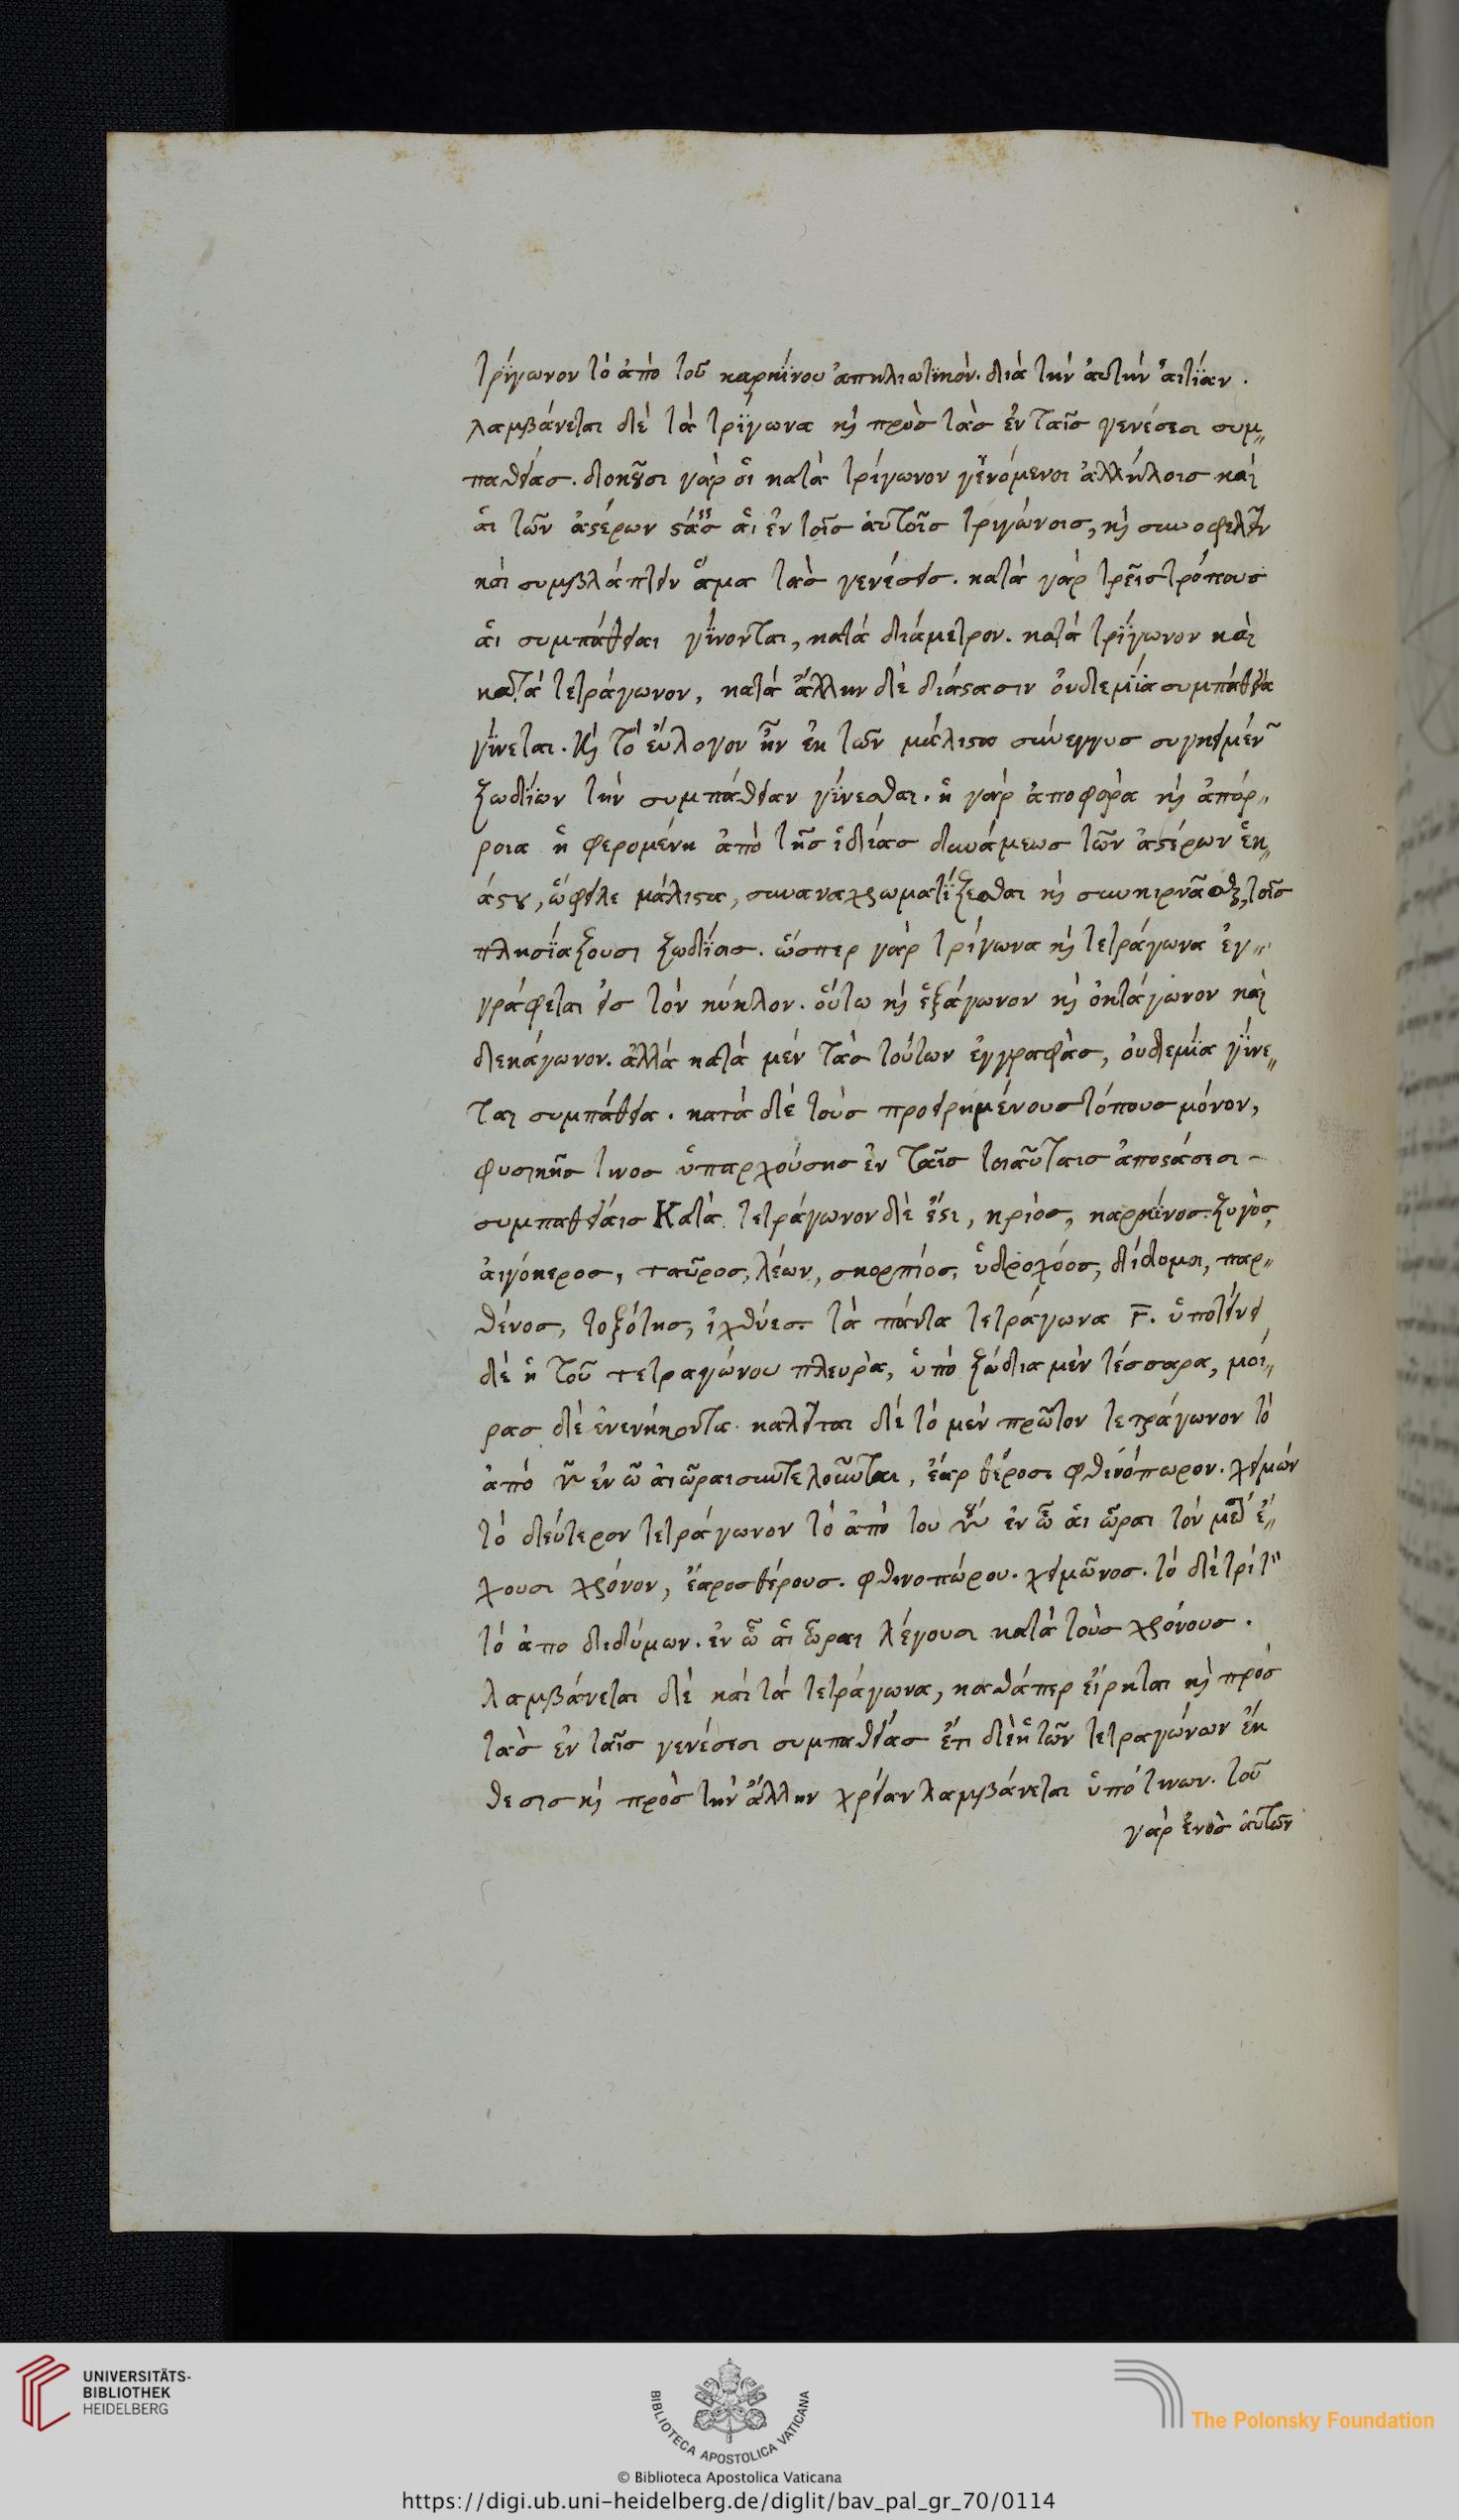 τρίγωνον τὸ ἀπὸ τοῦ καρκίνου ἀπηλιωτικόν. διὰ τὴν ἀυτὴν ἀιτίαν.
λαμβάνεται δὲ τὰ τρίγωνα κὶ πρὸς τὰς ἐν ταῖς γενέσεσι συμ„
παθείας. δοκοῦσι γὰρ ὁι κατὰ τρίγωνον γεινόμενοι ἀλλήλοις καὶ
ἁι τῶν ἀστέρων στάσ ἁι ἐν τοῖς ἀυτοῖς τριγώνοις, κὶ συνοφελεῖν
καὶ συμβλάπτειν ἅμα τὰς γενέσεις. κατὰ γὰρ τρεῖς τρόπους
ἁι συμπάθειαι γίνονται, κατὰ διάμετρον. κατὰ τρίγωνον καὶ
κατὰ τετράγωνον, κατὰ ἄλλην δὲ διάστασιν ὀυδεμία συμπάθεια
γίνεται. κὶ τὸ ἔυλογον ἦν ἐκ τῶν μάλιστα σύνεγγυς συγκειμέν
ζωδίων τὴν συμπάθειαν γίνεσθαι. ἡ γὰρ ἀποφορὰ κὶ ἀπόρ„
ροια ἡ φερομένη ἀπὸ τῆς ἰδίας δυνάμεως τῶν ἀστέρων ἑκ„
άστου, ὤφειλε μάλιστα, συναναχρωματίζεσθαι κὶ συνκιρνᾶσθαι τοῖς
πλησιάζουσι ζωδίοις. ὥσπερ γὰρ τρίγωνα κὶ τετράγωνα ἐγ„
γράφεται εἰς τὸν κύκλον. οὕτω κὶ ἑξάγωνον κὶ ὀκτάγωνον καὶ
δεκάγωνον. ἀλλὰ κατὰ μὲν τὰς τούτων ἐγγραφὰς, ὀυδεμία γίνε„
ται συμπάθεια. κατὰ δὲ τοὺς προειρημένους τόπους μόνον,
φυσικῆς τινος ὑπαρχούσης ἐν ταῖς τοιαύταις ἀποστάσεσι –
συμπαθείαις Κατὰ τετράγωνον δὲ ἔστι, κριὸς, καρκίνος. ζυγὸς,
ἀιγόκερος, ταῦρος, λέων, σκορπίος, ὑδροχόος, δίδυμοι, παρ„
θένος, τοξότης, ἰχθύες. τὰ πάντα τετράγωνα Γ. ὑποτείνει
δὲ ἡ τοῦ τετραγώνου πλευρὰ, ὑπὸ ζώδια μὲν τέσσαρα, μοί„
ρας δὲ ἐνενήκοντα. καλεῖται δὲ τὸ μὲν πρῶτον τετράγωνον τὸ
ἀπὸ ♈ ἐν ᾧ ἁι ὧραι συντελοῦνται, ἔαρ θέρος φθινόπωρον. χειμών
τὸ δεύτερον τετράγωνον τὸ ἀπὸ του ἐν ᾧ ἁι ὧραι τὸν ἔ„
χουσι χρόνον, ἔαρος θέρους. φθινοπώρου. χειμῶνος. τὸ δὲ τρίτ
τὸ ἀπο διδύμων. ἐν ᾧ ἁι ὧραι λέγουσι κατὰ τοὺς χρόνους.
λαμβάνεται δὲ καὶ τὰ τετράγωνα, καθάπερ εἴρηται κὶ πρὸς
τὰς ἐν ταῖς γενέσεσι συμπαθείας ἔτι δὲ ἡ τῶν τετραγώνων ἔκ
θεσις κὶ πρὸς τὴν ἄλλην χρείαν λαμβάνεται ὑπὸ τινων. τοῦ
γὰρ ἑνὸς ἀυτῶν
UNIVERSITÄTS-
BIBLIOTHEK
HEIDELBERG
BIBLIOTECA APOSTOLICA VATICANA
The Polonsky Foundation
© Biblioteca Apostolica Vaticana
https://digi.ub.uni-heidelberg.de/diglit/bav_pal_gr_70/0114